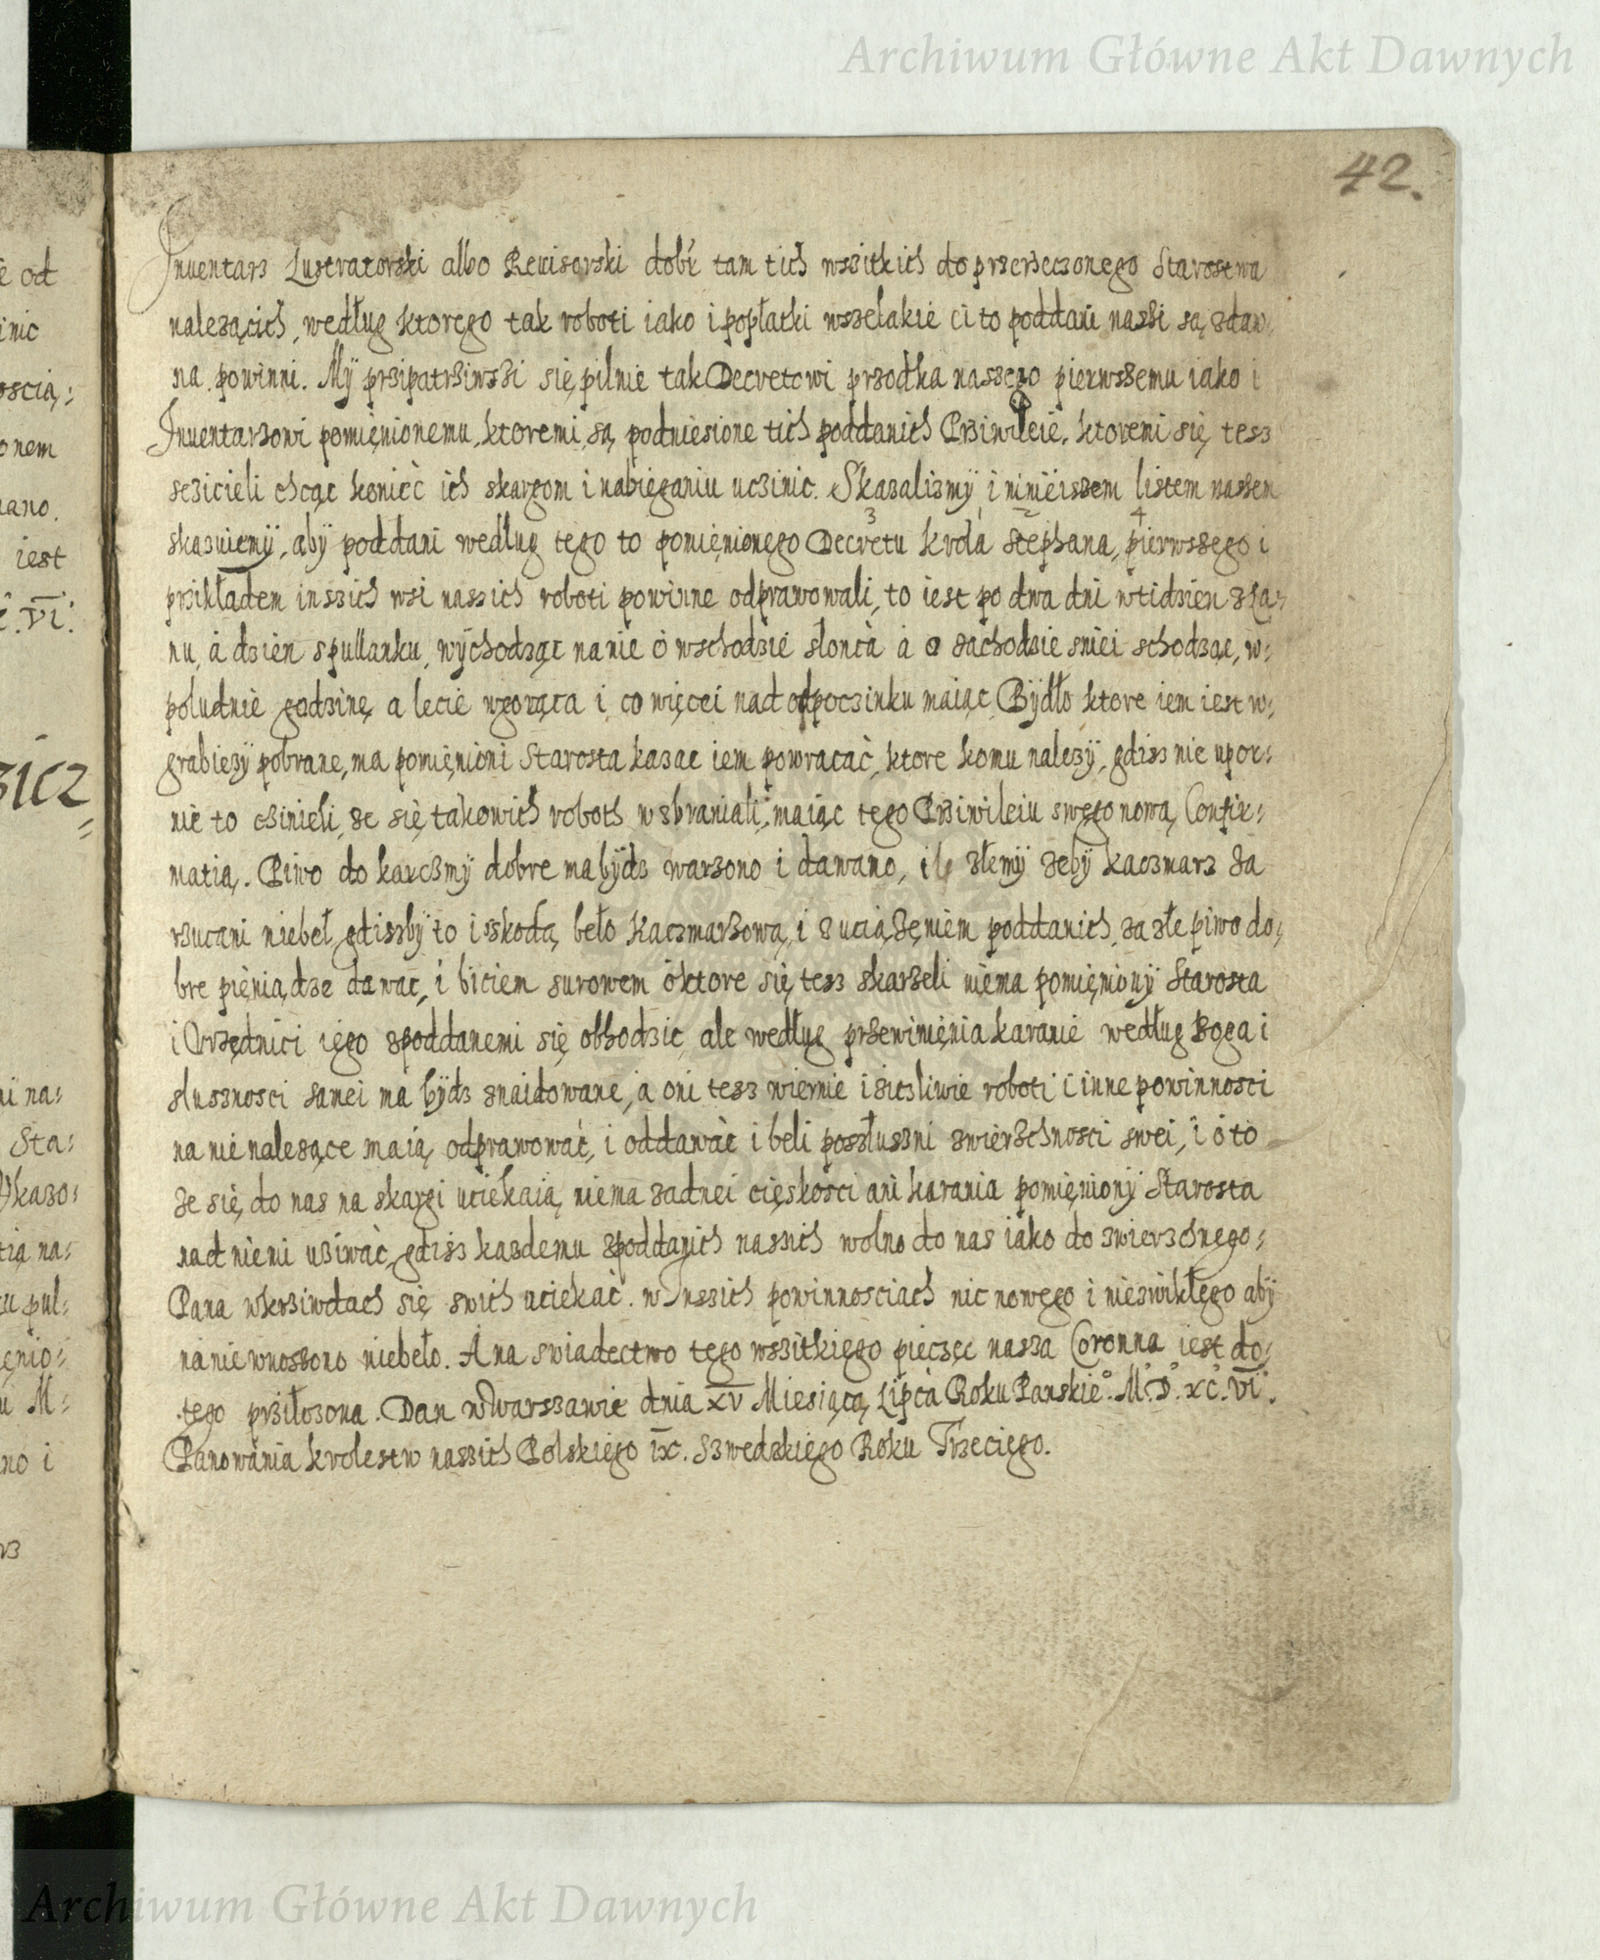 Archiwum Główne Akt Dawnych
42.
Inuentarz Lustratorski albo Reuisorski dobr tam tich wszitkich do przerzeczonego Starostwa
należącich, według ktorego tak roboti iako i popłatki wszelakie ci to poddani naszi są zdaw,
na powinni. Mÿ przipatrziwszi się pilnie tak Decretowi przodka naszego pierwszemu iako i
Inuentarzowi pomięnionemu, ktoremi są podniesione tich poddanich Prziwileie, ktoremi się tesz
szczicieli chcąc konięc ich skargom i nabieganiu uczinic. Skazalizmÿ i ninieiszem listem naszem
skazuiemÿ, abÿ poddani według tego to pomięnionego Decretu krola Stephana, pierwszego i
3 1 2 4
przikładem inszich wsi naszich roboti powinne odprawowali, to iest po dwa dni w tidzien z ła-
nu, a dzien z pullanku, wÿchodząc na nie o wschodzie słonca a o zachodzie zniei schodząc, w-
poludnie godzinę a lecie w gorąca i co więcei nad odpoczinku maiąc. Bÿdło ktore iem iest w-
grabieżÿ pobrane, ma pomięnioni Starosta kazac iem powracac, ktore komu należÿ, gdisz nie upor-
nie to czinieli, że się takowich roboth wzbraniali, maiąc tego Prziwileiu swego nową Confir-
matią. Piwo do karczmÿ dobre ma bÿdz warzono i dawano, i złemÿ żebÿ kaczmarz za
rzucani niebeł, gdiszbÿ to i szkodą beło kaczmarzową, i z uciążęniem poddanich, za złe piwo do-
bre pięniądze dawac, i biciem surowem o ktore się tesz skarżeli niema pomięnionÿ Starosta
i Urzędnici iego z poddanemi się obhodzic, ale według przewinięnia karanie według Boga i
słusznosci samei ma bÿdz znaidowane, a oni tesz wiernie i życzliwie roboti i inne powinnosci
na nie należące maią odprawowac, i oddawac i beli posłuszni zwierzchnosci swei, i o to
że się do nas na skargi uciekaią, niema żadnei cięskosci ani karania pomięnionÿ Starosta
nad niemi użiwac, gdisz każdemu z poddanich naszich wolno do nas iako do zwierzchnego-
Pana w krziwdach się swich uciekac. w Inszich powinnosciach nic nowego i niezwikłego abÿ
na nie wnoszono niebeło. A na swiadectwo tego wszitkiego pieczęc nasza Coronna iest do-
tego prziłożona. Dan w Warszawie dnia XV Miesiącą Lipca Roku Panskie°. M.D.XC.VI.
Panowania krolestw naszich Polskiego IX. Szwedzkiego Roku Trzeciego.
Archiwum Główne Akt Dawnych